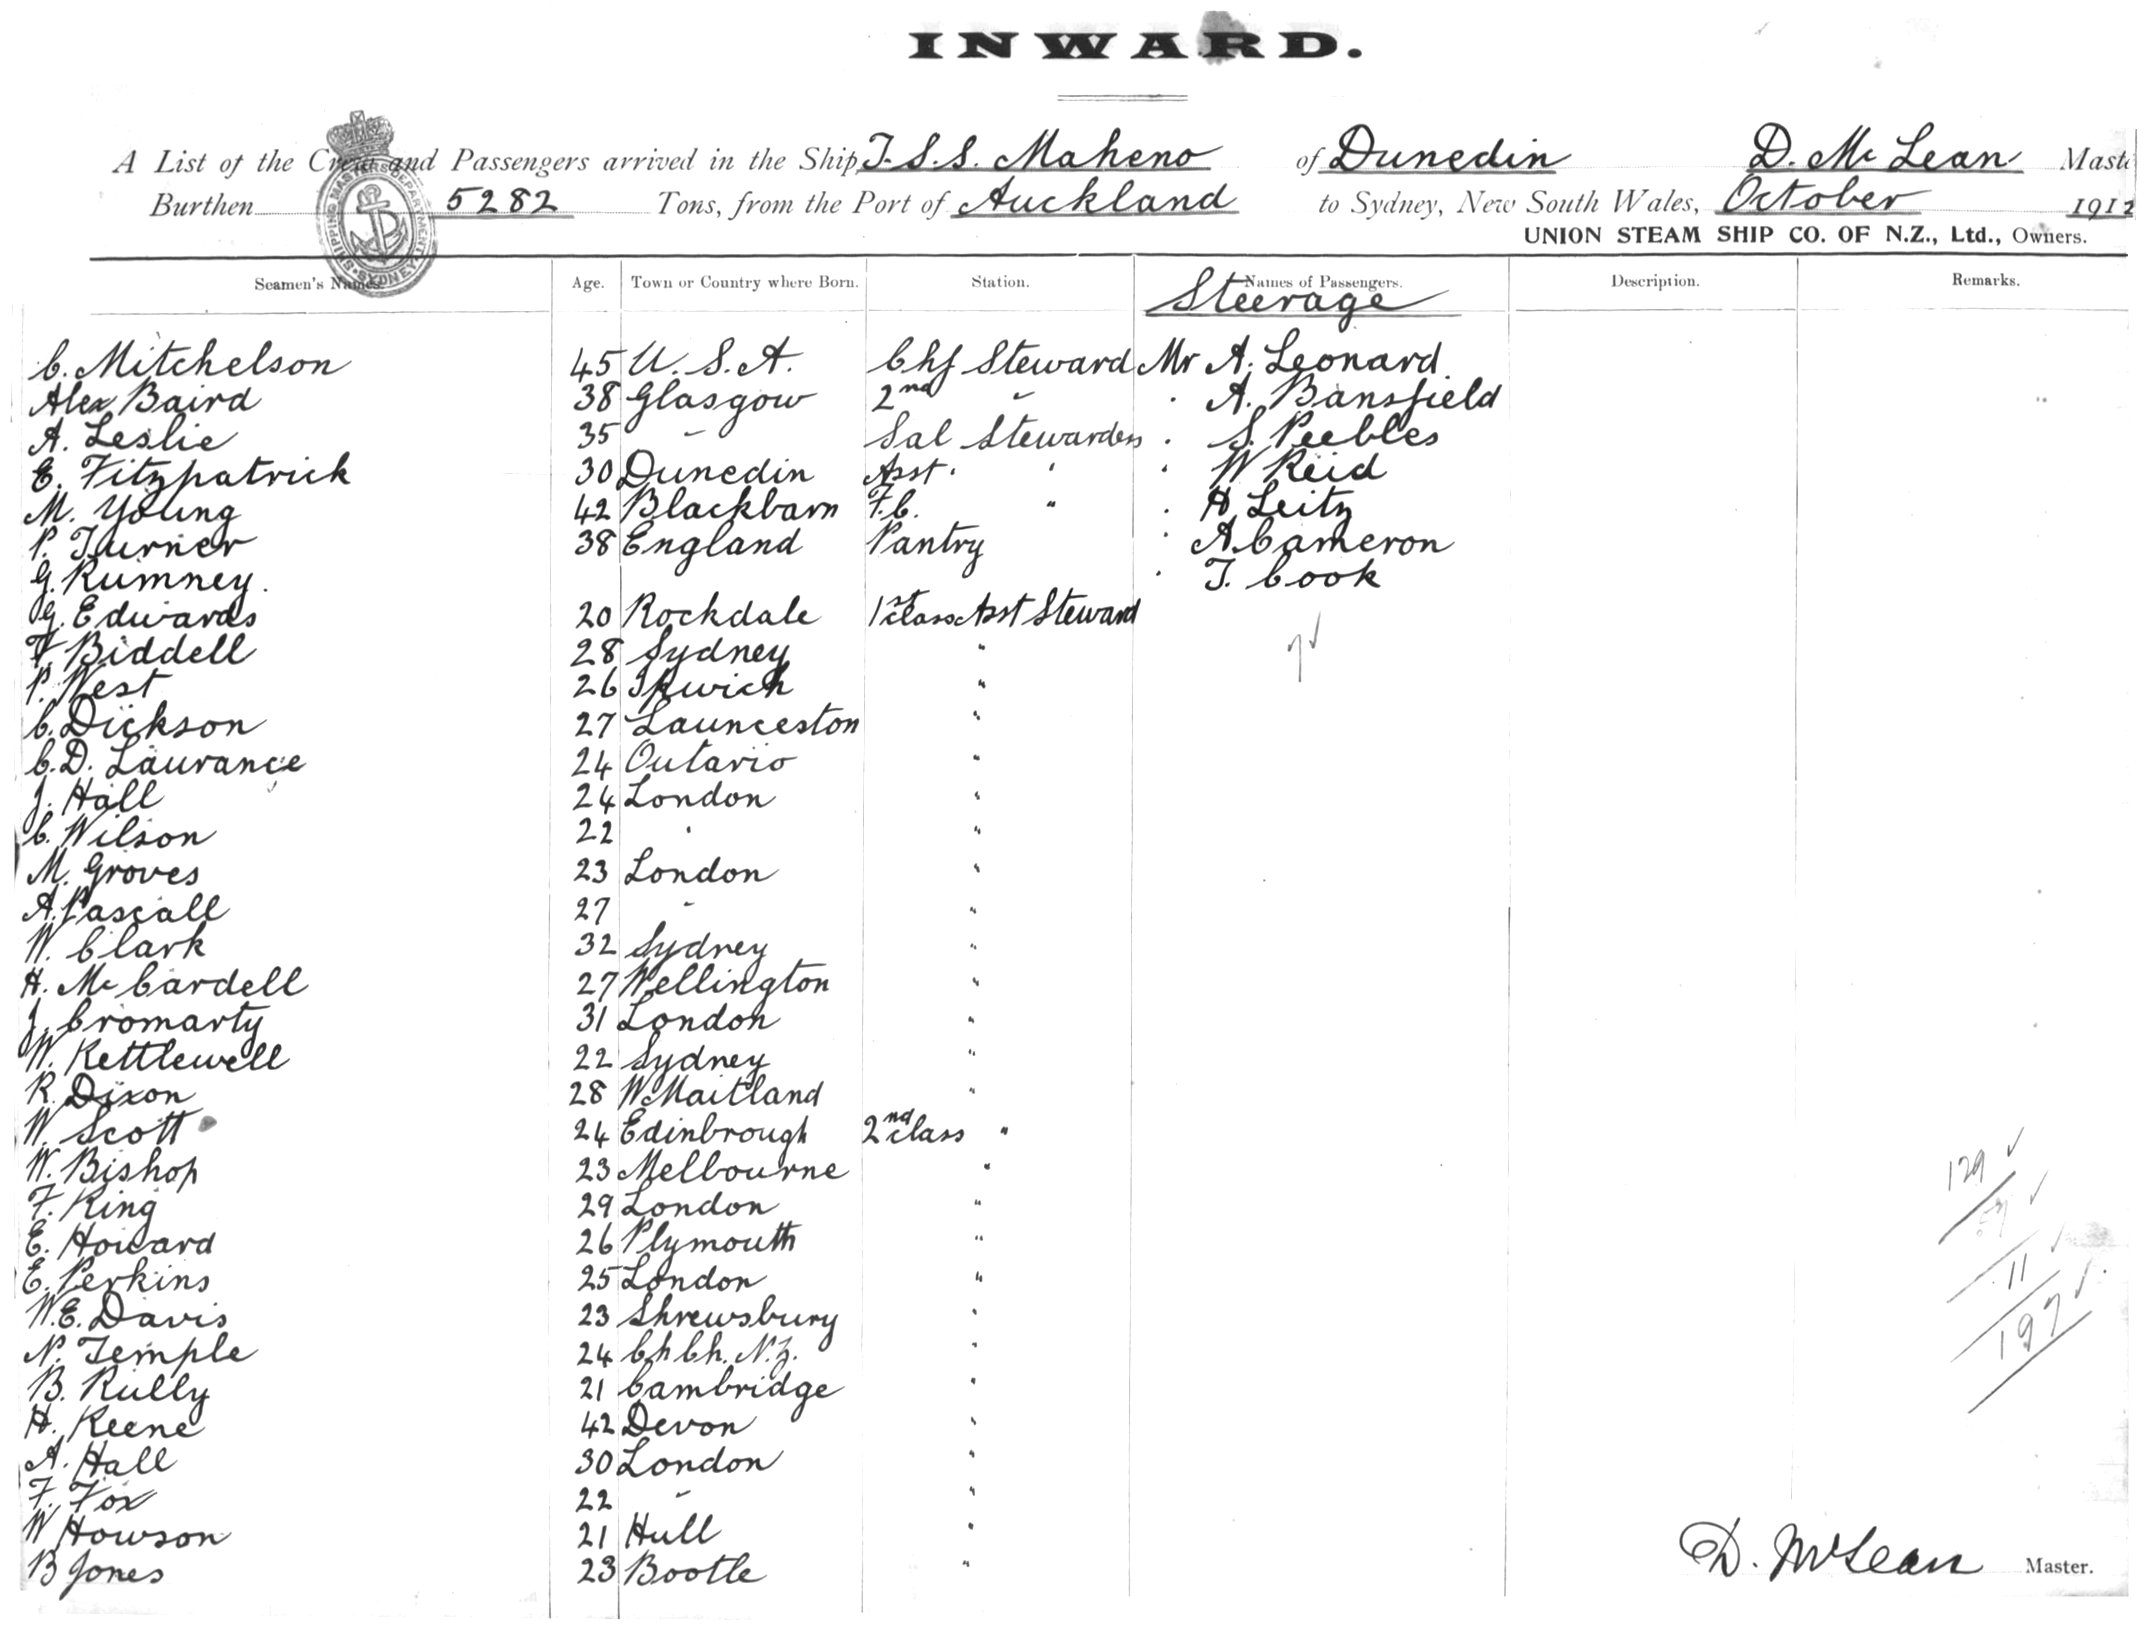 INWARD.
A List of the Crew and Passengers arrived in the Ship T.S.S. Maheno of Dunedin D. Mc Lean Maste
Burthen 5282 Tons, from the Port of Auckland to Sydney, New South Wales, October 1912
UNION STEAM SHIP CO. OF N.Z., Ltd., Owners.
SHIPPING MASTERS DEPARTMENT SYDNEY
Seamen's Names. Age. Town or Country where Born. Station. Names of Passengers. Description. Remarks.
Steerage
C. Mitchelson 45 U.S.A. Chf Steward Mr A. Leonard
Alex Baird 38 Glasgow 2nd " " A. Bansfield
A. Leslie 35 " Sal Stewardess " S. Peebles
E. Fitzpatrick 30 Dunedin Asst " " " W Reid
M. Young 42 Blackbarn F.C. " " H Leitz
P. Turner 38 England Pantry " A. Cameron
G. Rumney. " T. Cook
G. Edwards 20 Rockdale 1st class Asst Steward
F Biddell 28 Sydney " 7 ✓
P. West 26 Ipswich "
C. Dickson 27 Launceston "
C.D. Laurance 24 Outario "
J. Hall 24 London "
C. Wilson 22 " "
M. Groves 23 London "
A. Pascall 27 " "
W. Clark 32 Sydney "
H. Mc Cardell 27 Wellington "
J. Cromarty 31 London "
W. Kettlewell 22 Sydney "
R. Dixon 28 W Maitland "
W. Scott 24 Edinbrough 2nd class "
W. Bishop 23 Melbourne "
F. King 29 London "
E. Howard 26 Plymouth "
E. Perkins 25 London "
W.E. Davis 23 Shrewsbury "
N. Temple 24 Ch Ch. N.Z. "
B. Rully 21 Cambridge "
H. Keene 42 Devon "
A. Hall 30 London "
F. Fox 22 " "
W Howson 21 Hull "
B Jones 23 Bootle "
129 ✓
57 ✓
11 ✓
197 ✓
D. McLean Master.